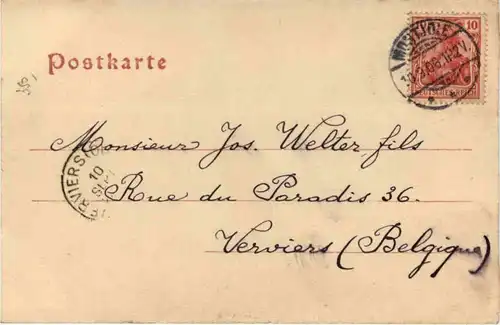 Postkarte
10
MONTJOIE
DEUTSCHES REICH
Monsieur Jos. Welter fils
VERVIERS
10
Rue du Paradis 36.
Verviers (Belgique)